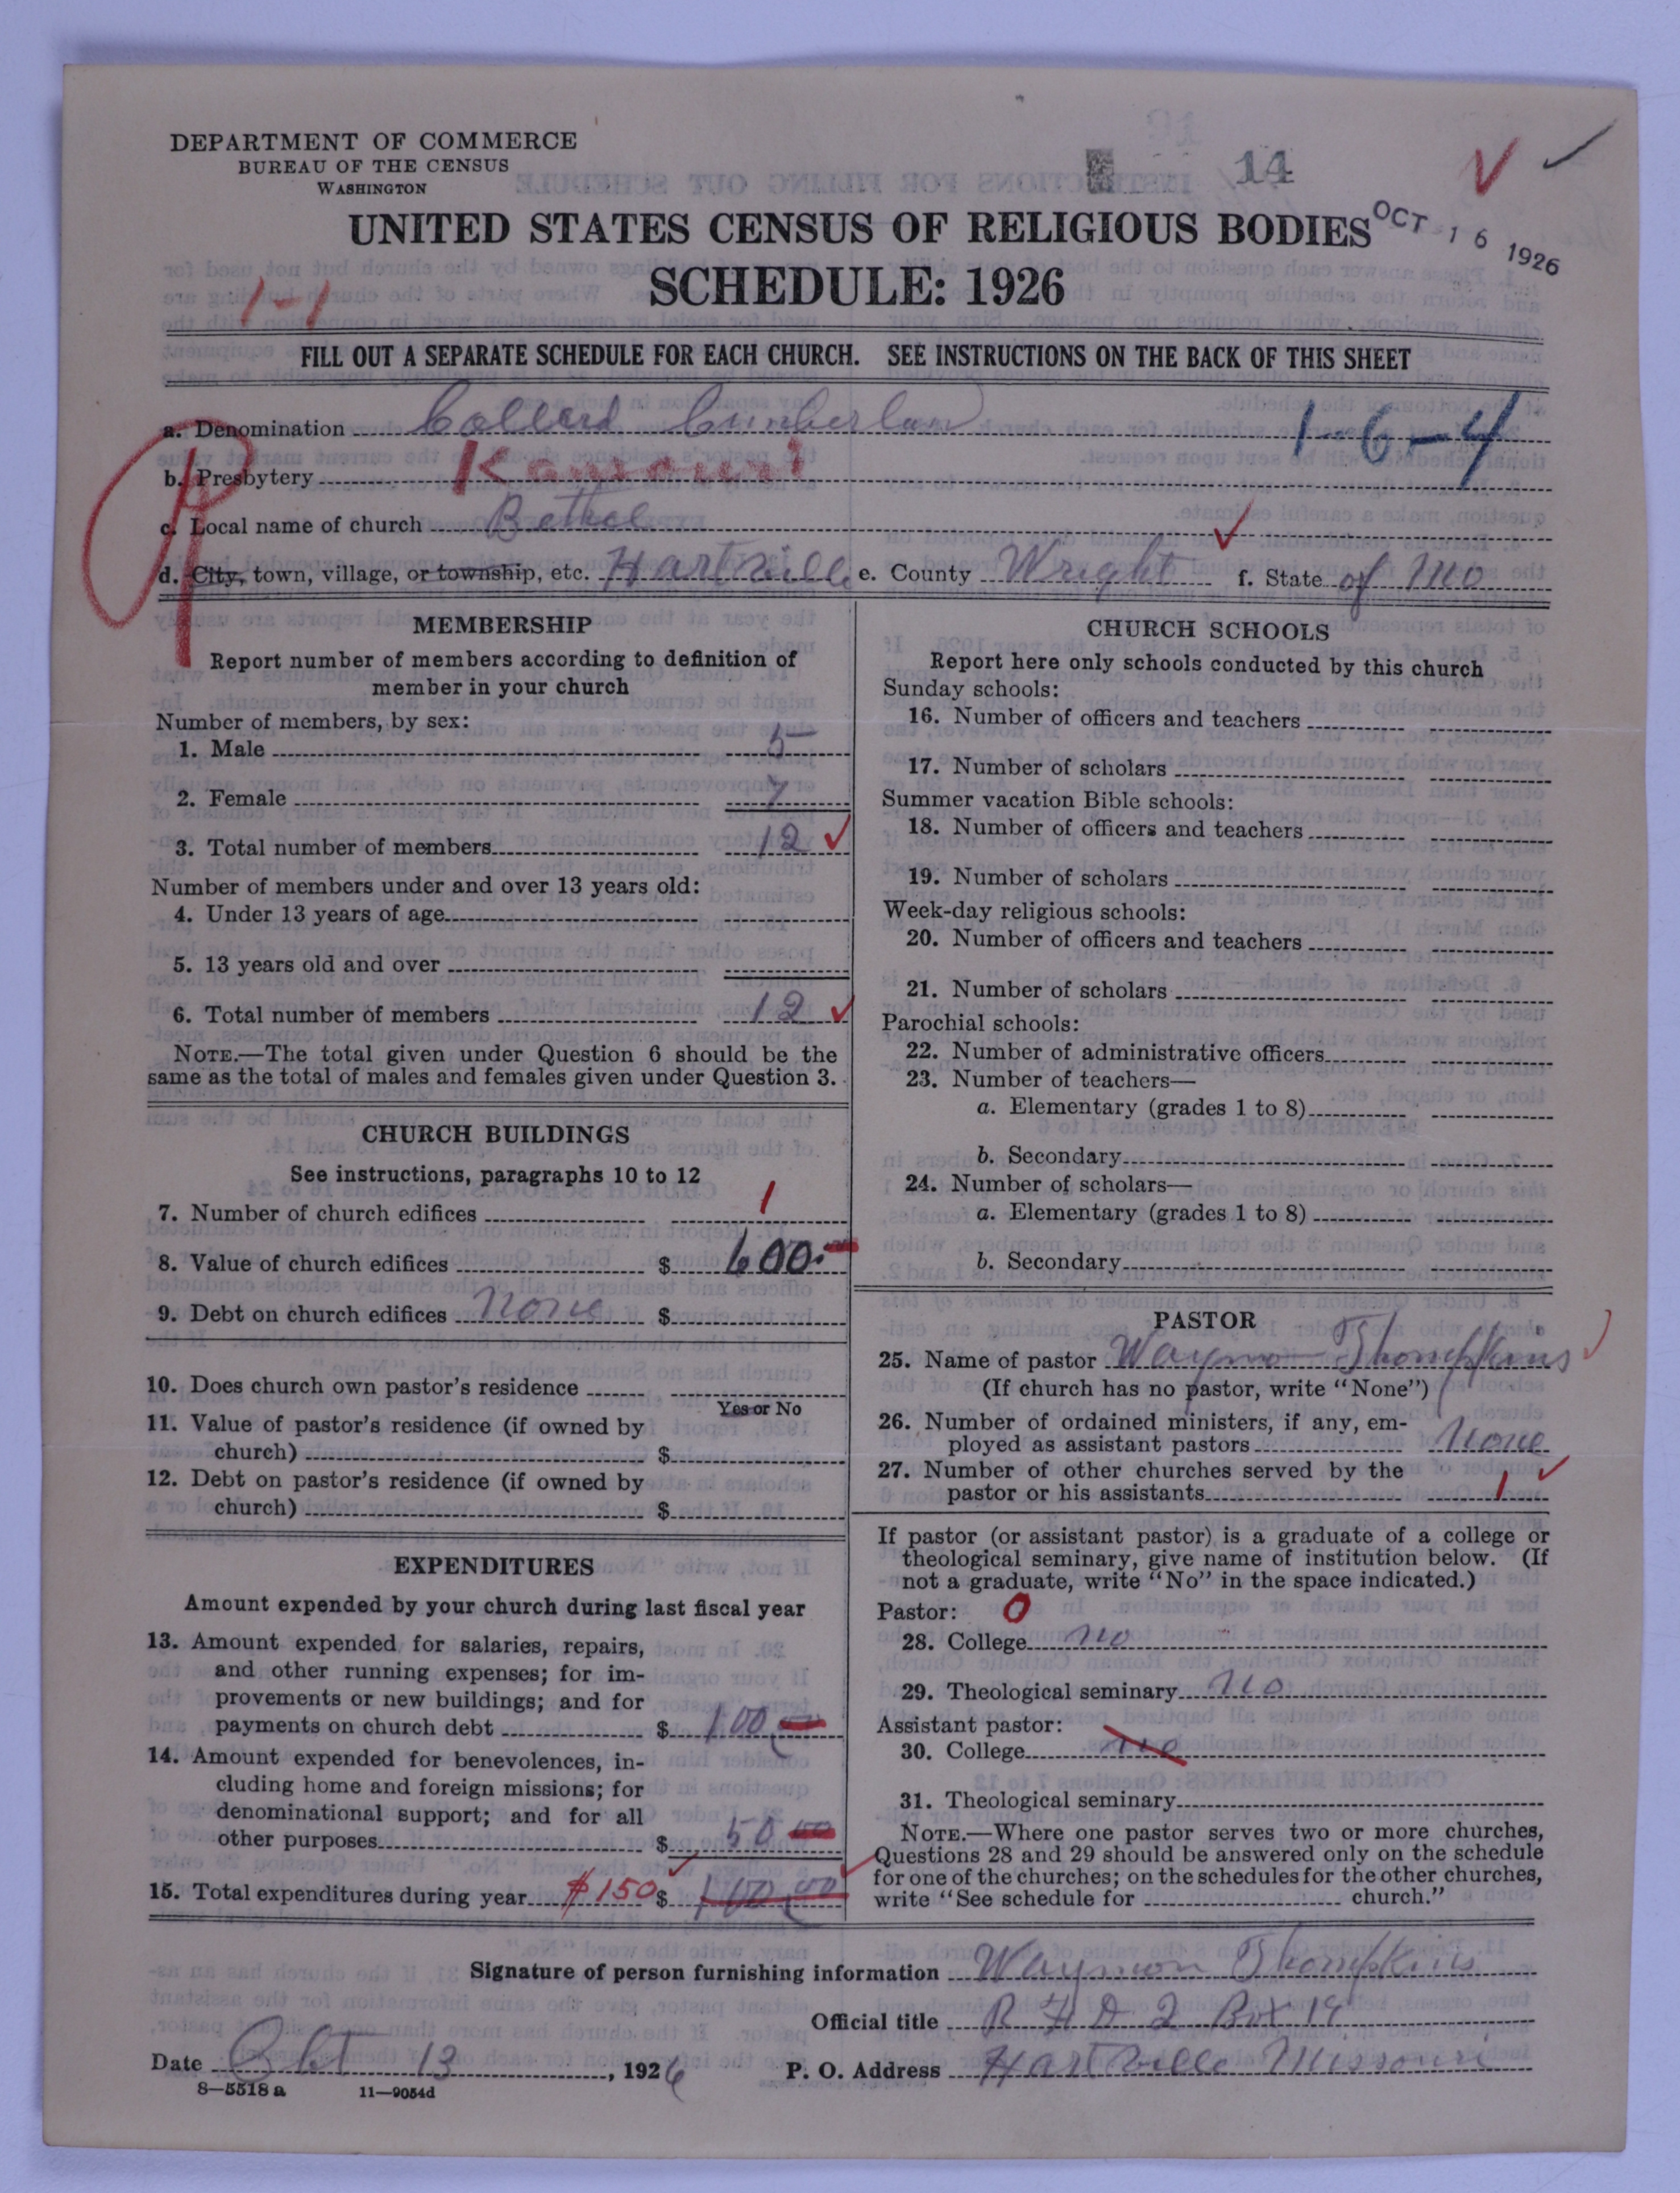 DEPARTMENT OF COMMERCE
BUREAU OF THE CENSUS
WASHINGTON
14
UNITED STATES CENSUS OF RELIGIOUS BODIES
OCT 16 1926
SCHEDULE: 1926
1-1
FILL OUT A SEPARATE SCHEDULE FOR EACH CHURCH. SEE INSTRUCTIONS ON THE BACK OF THIS SHEET
a. Denomination Collerd Cumberlan 1-6-4
b. Presbytery Kamouri
c. Local name of church Bethel
d. City, town, village, or township, etc. Hartville e. County Wright f. State of Mo
MEMBERSHIP
Report number of members according to definition of
member in your church
Number of members, by sex:
1. Male 5
2. Female 7
3. Total number of members 12
Number of members under and over 13 years old:
4. Under 13 years of age
5. 13 years old and over
6. Total number of members 12
NOTE.—The total given under Question 6 should be the
same as the total of males and females given under Question 3.
CHURCH BUILDINGS
See instructions, paragraphs 10 to 12
7. Number of church edifices 1
8. Value of church edifices $ 600.
9. Debt on church edifices None $
10. Does church own pastor's residence
Yes or No
11. Value of pastor's residence (if owned by
church) $
12. Debt on pastor's residence (if owned by
church) $
EXPENDITURES
Amount expended by your church during last fiscal year
13. Amount expended for salaries, repairs,
and other running expenses; for im-
provements or new buildings; and for
payments on church debt $ 100
14. Amount expended for benevolences, in-
cluding home and foreign missions; for
denominational support; and for all
other purposes $ 50 00
15. Total expenditures during year $150 $ 100 00
CHURCH SCHOOLS
Report here only schools conducted by this church
Sunday schools:
16. Number of officers and teachers
17. Number of scholars
Summer vacation Bible schools:
18. Number of officers and teachers
19. Number of scholars
Week-day religious schools:
20. Number of officers and teachers
21. Number of scholars
Parochial schools:
22. Number of administrative officers
23. Number of teachers—
a. Elementary (grades 1 to 8)
b. Secondary
24. Number of scholars—
a. Elementary (grades 1 to 8)
b. Secondary
PASTOR
25. Name of pastor Waymon Thompkins
(If church has no pastor, write "None")
26. Number of ordained ministers, if any, em-
ployed as assistant pastors None
27. Number of other churches served by the
pastor or his assistants 1
If pastor (or assistant pastor) is a graduate of a college or
theological seminary, give name of institution below. (If
not a graduate, write "No" in the space indicated.)
Pastor: 0
28. College no
29. Theological seminary no
Assistant pastor:
30. College no
31. Theological seminary
NOTE.—Where one pastor serves two or more churches,
Questions 28 and 29 should be answered only on the schedule
for one of the churches; on the schedules for the other churches,
write "See schedule for church."
Signature of person furnishing information Waymon Thompkins
Official title R F D 2 Box 19
Date Obt 13, 1926 P. O. Address Hartville Missouri
8—5518 a 11—9054d